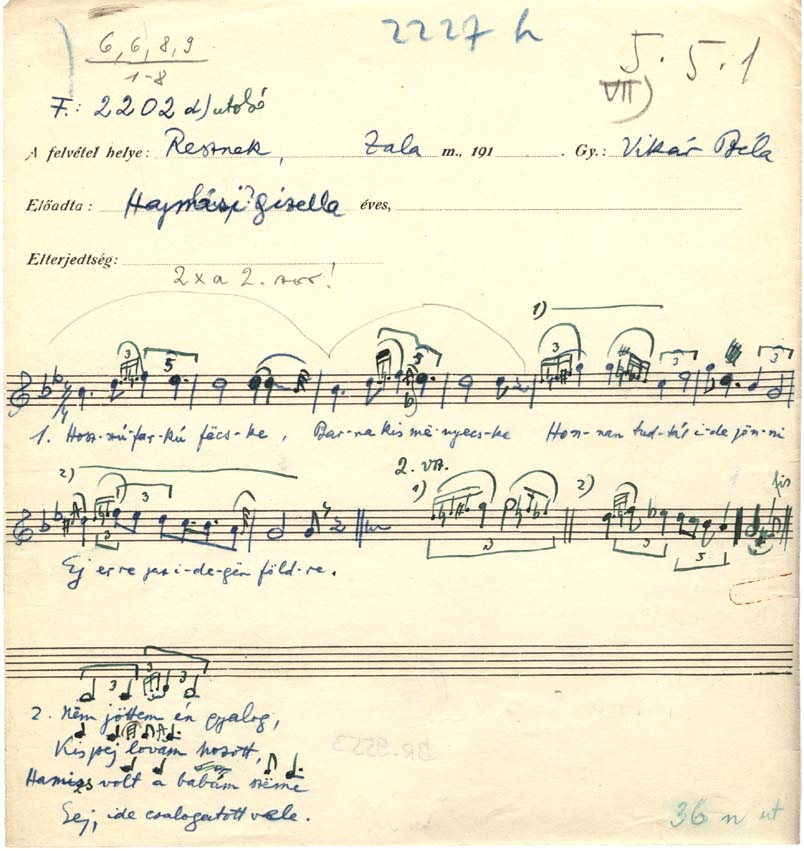 2227 h
6, 6, 8, 9
1-8
5. 5. 1
VII)
F.: 2202 d) utolsó
A felvétel helye: Resznek, Zala m., 191 . Gy.: Vikár Béla
Előadta: Gizella éves,
Elterjedtség:
2x a 2. sor!
1)
3 5 5 3 3 3
1. Hosz-szú-far-kú fëcs-ke, Bar-na kis më-nyecs-ke Hon-nan tud-tál i-de jön-ni
2) 2. vsz. 1) 2) fis
3 3 3 3 5
Ej er-re jaz i-de-gën föld-re.
3 3 3
2. Nëm jöttem én gyalog,
Kis pej lovam hozott,
Hamiss volt a babám szëme
Ëej, ide csalogatott vele.
36 n ut